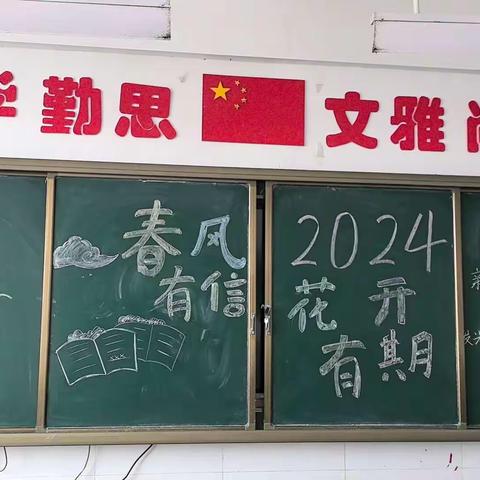 勤思 文雅
春风
有信
2024
花开
有期